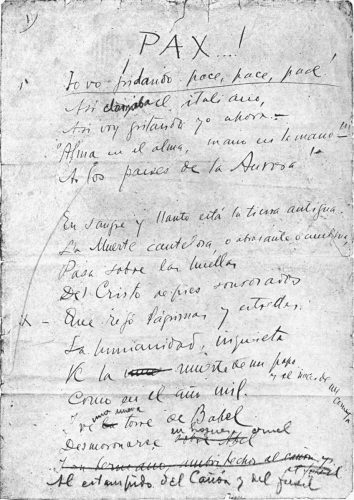 1)
PAX...!
Io vo gridando pace, pace, pace!
Así clamaba el italiano,
Así voy gritando yo ahora —
"Alma en el alma, mano en la mano" —
A los países de la Aurora!
En sangre y llanto está la tierra antigua.
La Muerte cautelosa, o abrasante o ambigua,
Pasa sobre las huellas
Del Cristo de pies sonrosados
x - Que regó lágrimas y estrellas.
La humanidad, inquieta
Ve la muerte de un papa y el nace de un cometa
Como en el año mil.
Y ve una nueva torre de Babel
Desmoronarse en hoguera cruel
Al estampido del cañón y del fusil